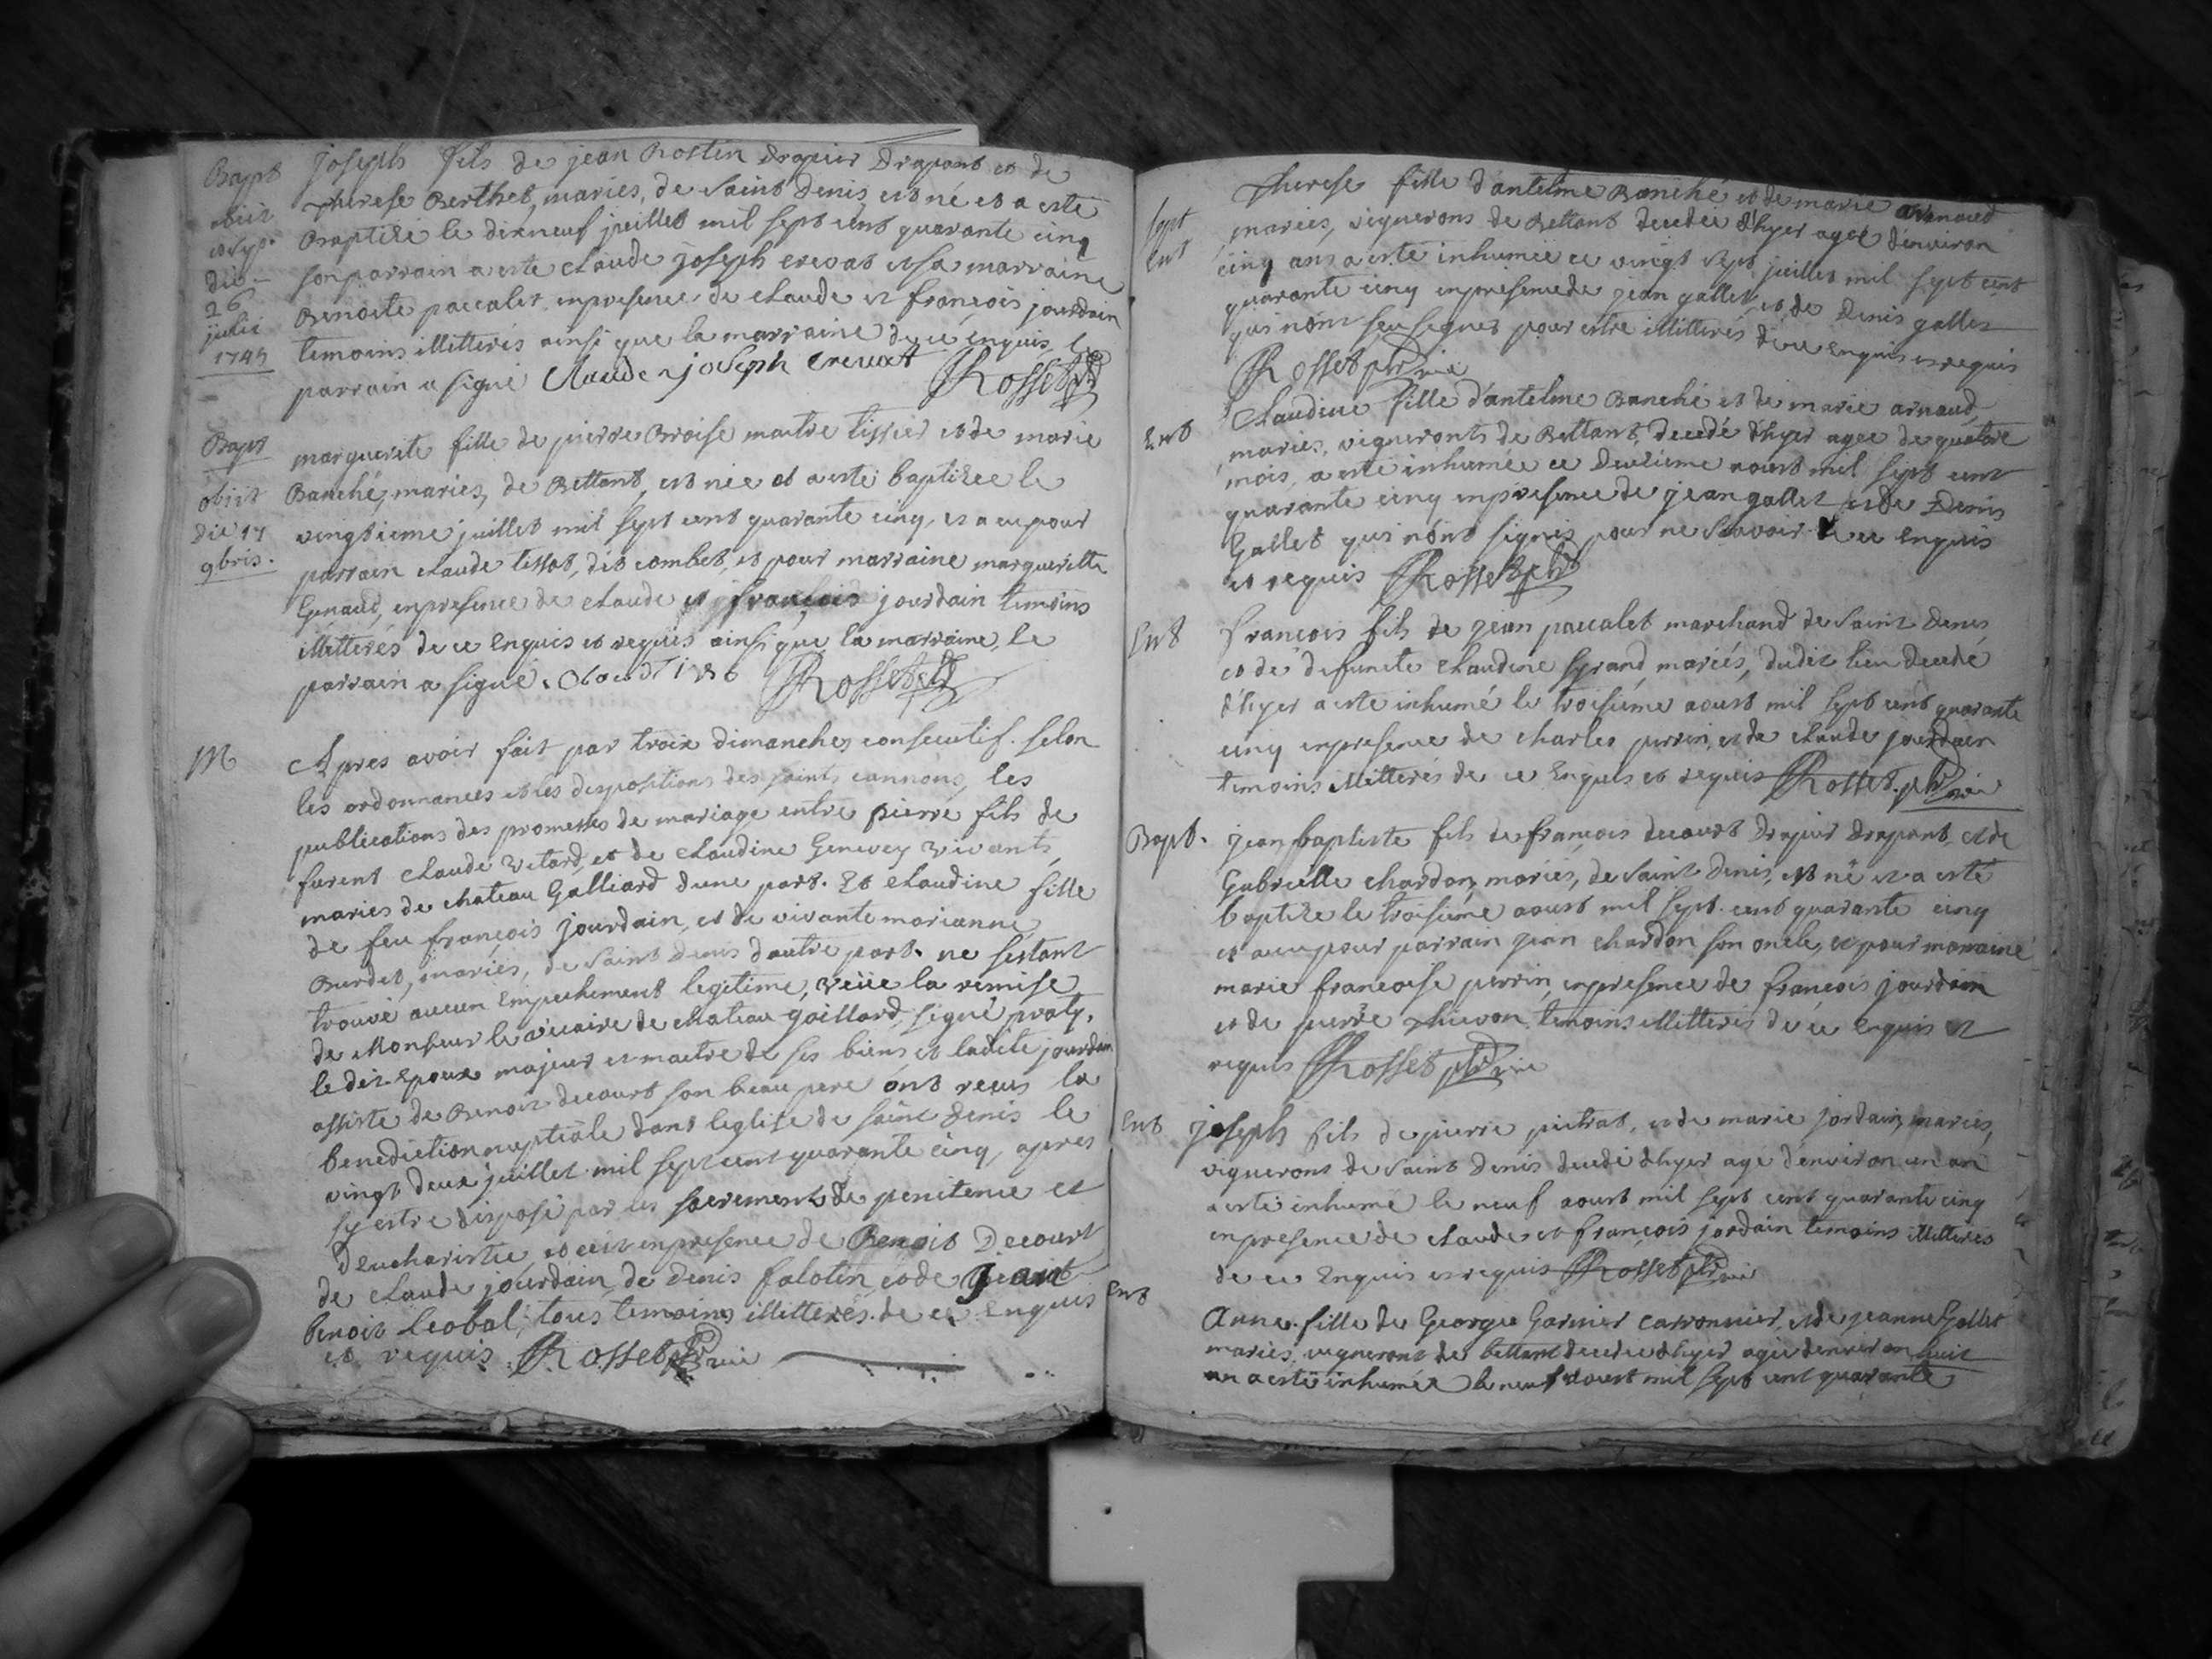 Bapt
obiit
die
26
julii
1745
joseph fils de jean Rostin drapier drapant et de
therese Berthet, mariés, de Saint denis, est né et a esté
Baptisé le dixneuf juillet mil sept cent quarante cinq
son parrain a esté claude joseph crevat et sa marraine
Benoite paccalet en presence de claude et françois jourdain
temoins illitterés ainsi que la marraine de ce enquis, le
parrain a signé Claude joseph Crevat Rosset
Bapt
obiit
die 17
9bris.
marguerite fille de pierre Broise maitre tissier et de marie
Banché, mariés, de Bettant, est née et a esté baptizée le
vingtieme juillet mil sept cent quarante cinq, et a eu pour
parrain claude tissot, dit combet, et pour marraine marguerite
en presence de claude et françois jourdain temoins
illitterés de ce enquis et requis ainsi que la marraine, le
parrain a signé. Rosset
M
Apres avoir fait par trois dimanches consecutif. selon
les ordonnances et les dispositions des saints cannons, les
publications des promesses de mariage entre pierre fils de
furent claude vetard, et de claudine Genevey vivants,
mariés de chateau Galliard dune part. Et claudine fille
de feu françois jourdain, et de vivante marianne
Burdet, mariés, de Saint denis dautre part. ne sestant
trouvé aucun empechement legitime, veüe la remise
de Monsieur le vicaire de chateau gaillard, signé
le dit Epoux majeur et maitre de ses biens et ladite jourdain
assiste de Benoit decourt son beau pere ont recus la
benediction nuptiale dans leglise de saint denis le
vingt deux juillet mil sept cent quarante cinq, apres
sy estre disposé par les sacrements de penitence et
deucharistie, et ce en presence de Benoit Decourt
de claude jourdain, de denis falotin, et de
benoit leobal, tous temoins illitterés. de ce enquis
et requis Rosset
Sept
Ent
therese fille dantelme Banché et de marie arnaud
mariés, vignerons de Bettant decedée d'hyer agée denviron
cinq ans a esté inhumée ce vingt sept juillet mil sept cent
quarante cinq en presence de jean gallet, et de denis gallet
qui n'ont sçu signer pour estre illitterés de ce enquis et requis
Rosset
Ent
Claudine fille d'antelme Banché et de marie arnaud,
mariés, vignerons de Bettant, decedé d'hyer agée de quatre
mois, a esté inhumée ce deuxieme aoust mil sept cent
quarante cinq en presence de jean gallet et de Denis
Gallet qui n'ont signés pour ne scavoir de ce enquis
et requis Rosset
Ent
francois fils de jean paccalet marchand de Saint denis
et de defuncte claudine mariés, dudit lieu decedé
d'hyer a esté inhumé le troisième aoust mil sept cent quarante
cinq en presence de charles perrin, et de claude jourdain
temoins illitterés de ce enquis et requis Rosset
Bapt.
jean baptiste fils de françois decourt drapier drapant, et de
Gabrielle chardon, mariés, de Saint denis, est né et a esté
baptizé le troisieme aoust mil sept cent quarante cinq
et a eu pour parrain jean chardon son oncle, et pour marraine
marie francoise perrin, en presence de francois jourdain
et de pierre temoins illitterés de ce enquis et
requis Rosset
Ent
joseph fils de pierre pietrat, et de marie jordain, mariés,
vignerons de Saint denis decedé d'hyer agé d'environ un an
a esté inhumé le neuf aoust mil sept cent quarante cinq
en presence de claude et françois jordain temoins illitterés
de ce enquis et requis Rosset
Ent
Anne fille de George Garnier et de jeanne Gallet
mariés, vignerons de bettant decedée d'hyer agée denviron huit
an a esté inhumée le neuf aoust mil sept cent quarante